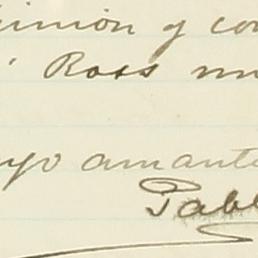 inion y co
Ross mu
yo amante
Pabl